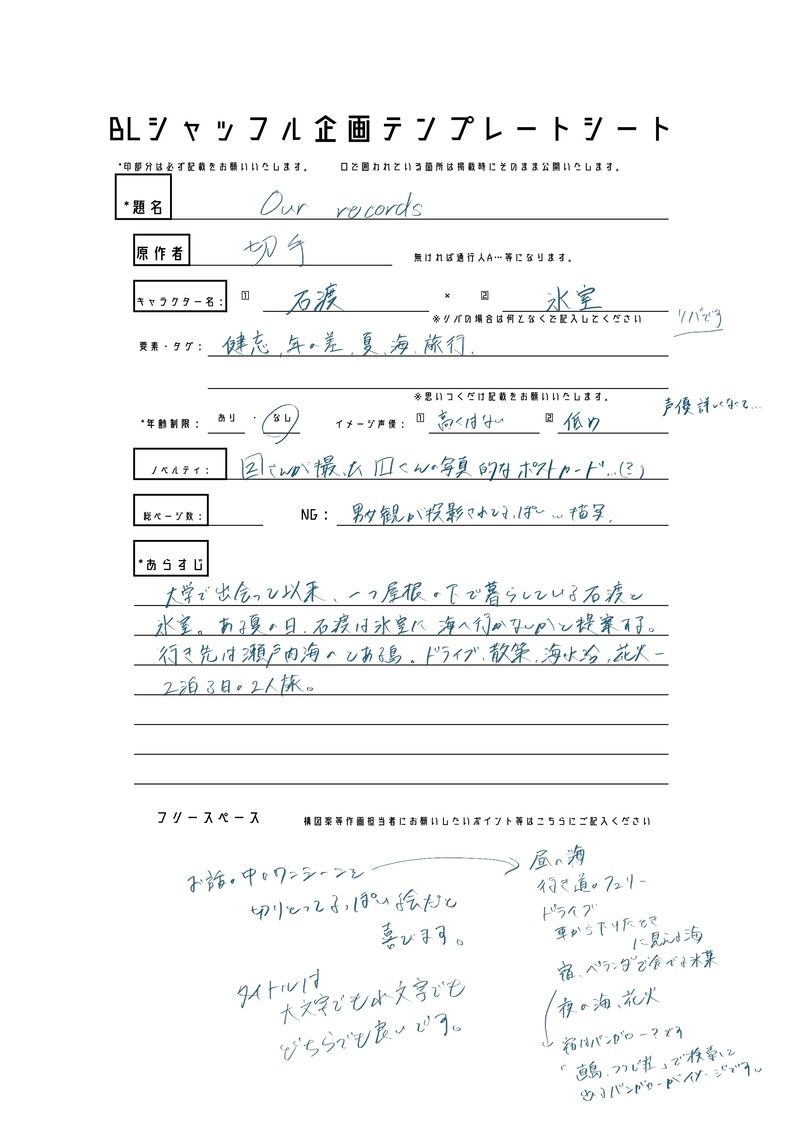 BLシャッフル企画テンプレートシート
*印部分は必ず記載をお願いいたします。 口で囲われている箇所は掲載時にそのまま公開いたします。
*題名 Our records
原作者 切手 無ければ通行人A…等になります。
キャラクター名: 1 石渡 × 2 氷室
※リバの場合は何となくで記入してください リバです
要素・タグ: 健忘、年の差、夏、海、旅行、
※思いつくだけ記載をお願いいたします。
声優詳しくなくて…
*年齢制限: あり ・ なし イメージ声優: 1 高くはない 2 低め
ノベルティ: 2さんが撮った1くんの写真的なポストカード…(?)
総ページ数: NG: 男女観が投影されてるっぽい…描写、
*あらすじ
大学で出会って以来、一つ屋根の下で暮らしている石渡と
氷室。ある夏の日、石渡は氷室に海へ行かないかと提案する。
行き先は瀬戸内海のとある島。ドライブ、散策、海水浴、花火ー
2泊3日の2人旅。
フリースペース 構図案等作画担当者にお願いしたいポイント等はこちらにご記入ください
お話の中のワンシーンを
切りとってるっぽい絵だと
喜びます。
タイトルは
大文字でも小文字でも
どちらでも良いです。
昼の海
行き道のフェリー
ドライブ
車からおりたとき
に見える海
宿、ベランダで食べる氷菓
夜の海、花火
宿はバンガロー?です
「直島、つつじ荘」で検索して
出るバンガローがイメージです。